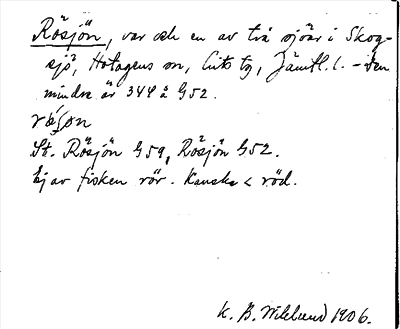 Rösjön, var och en av två sjöar i Skog-
sjö, Hotagens sn, Lits tg, Jämtl. l. – Den
mindre är 344 å G52.
St. Rösjön G59, Rösjön G52.
Ej av fisken rör. Kanske < röd.
K. B. Wiklund 1906.